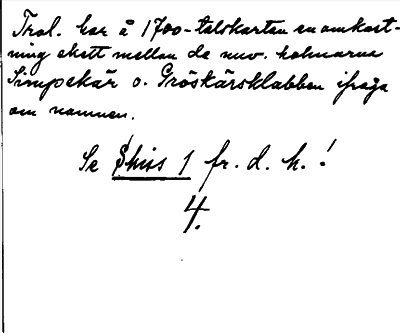 Trol. har å 1700-talskartan en omkast-
ning skett mellan de nuv. holmarna
Simpskär o. Gröskärsklabben ifråga
om namnen.
Se Skiss 1 fr. d. h.!
4.